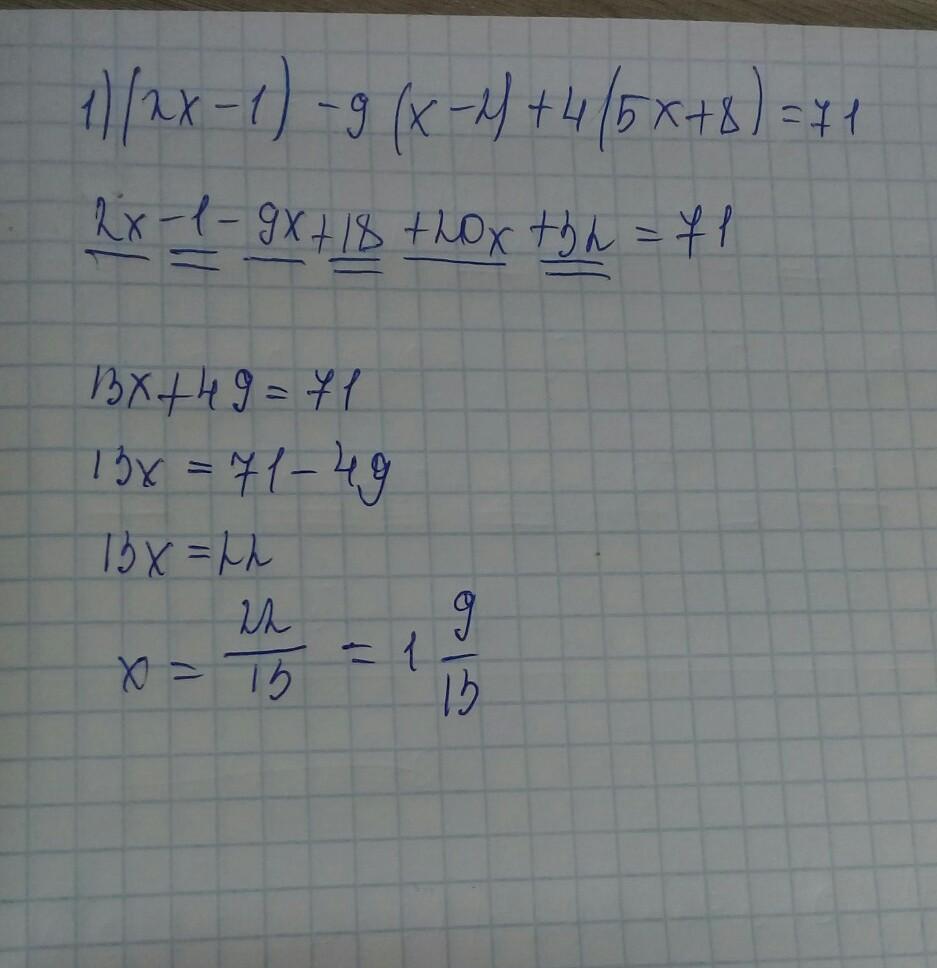 1) (2x - 1) - 9 (x - 2) + 4 (5x + 8) = 71
2x - 1 - 9x + 18 + 20x + 32 = 71
13x + 49 = 71
13x = 71 - 49
13x = 22
x = 22/13 = 1 9/13